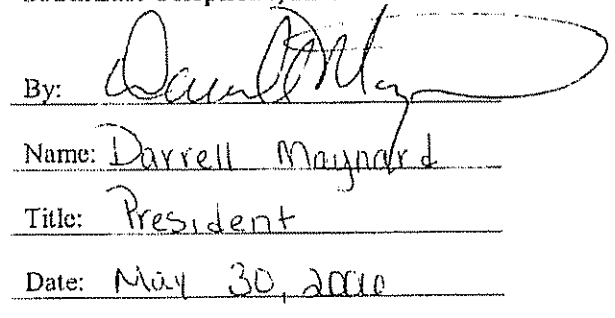 By:
Name: Darrell Maynard
Title: President
Date: May 30, 2006